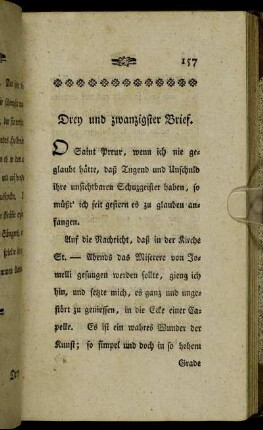 157
Drey und zwanzigster Brief.
O Saint Preux, wenn ich nie ge-
glaubt hätte, daß Tugend und Unschuld
ihre unsichtbaren Schuzgeister haben, so
müßt' ich seit gestern es zu glauben an-
fangen.
Auf die Nachricht, daß in der Kirche
St. — Abends das Miserere von Jo-
melli gesungen werden sollte, gieng ich
hin, und setzte mich, es ganz und unge-
stört zu geniessen, in die Ecke einer Ca-
pelle. Es ist ein wahres Wunder der
Kunst; so simpel und doch in so hohem
Grade